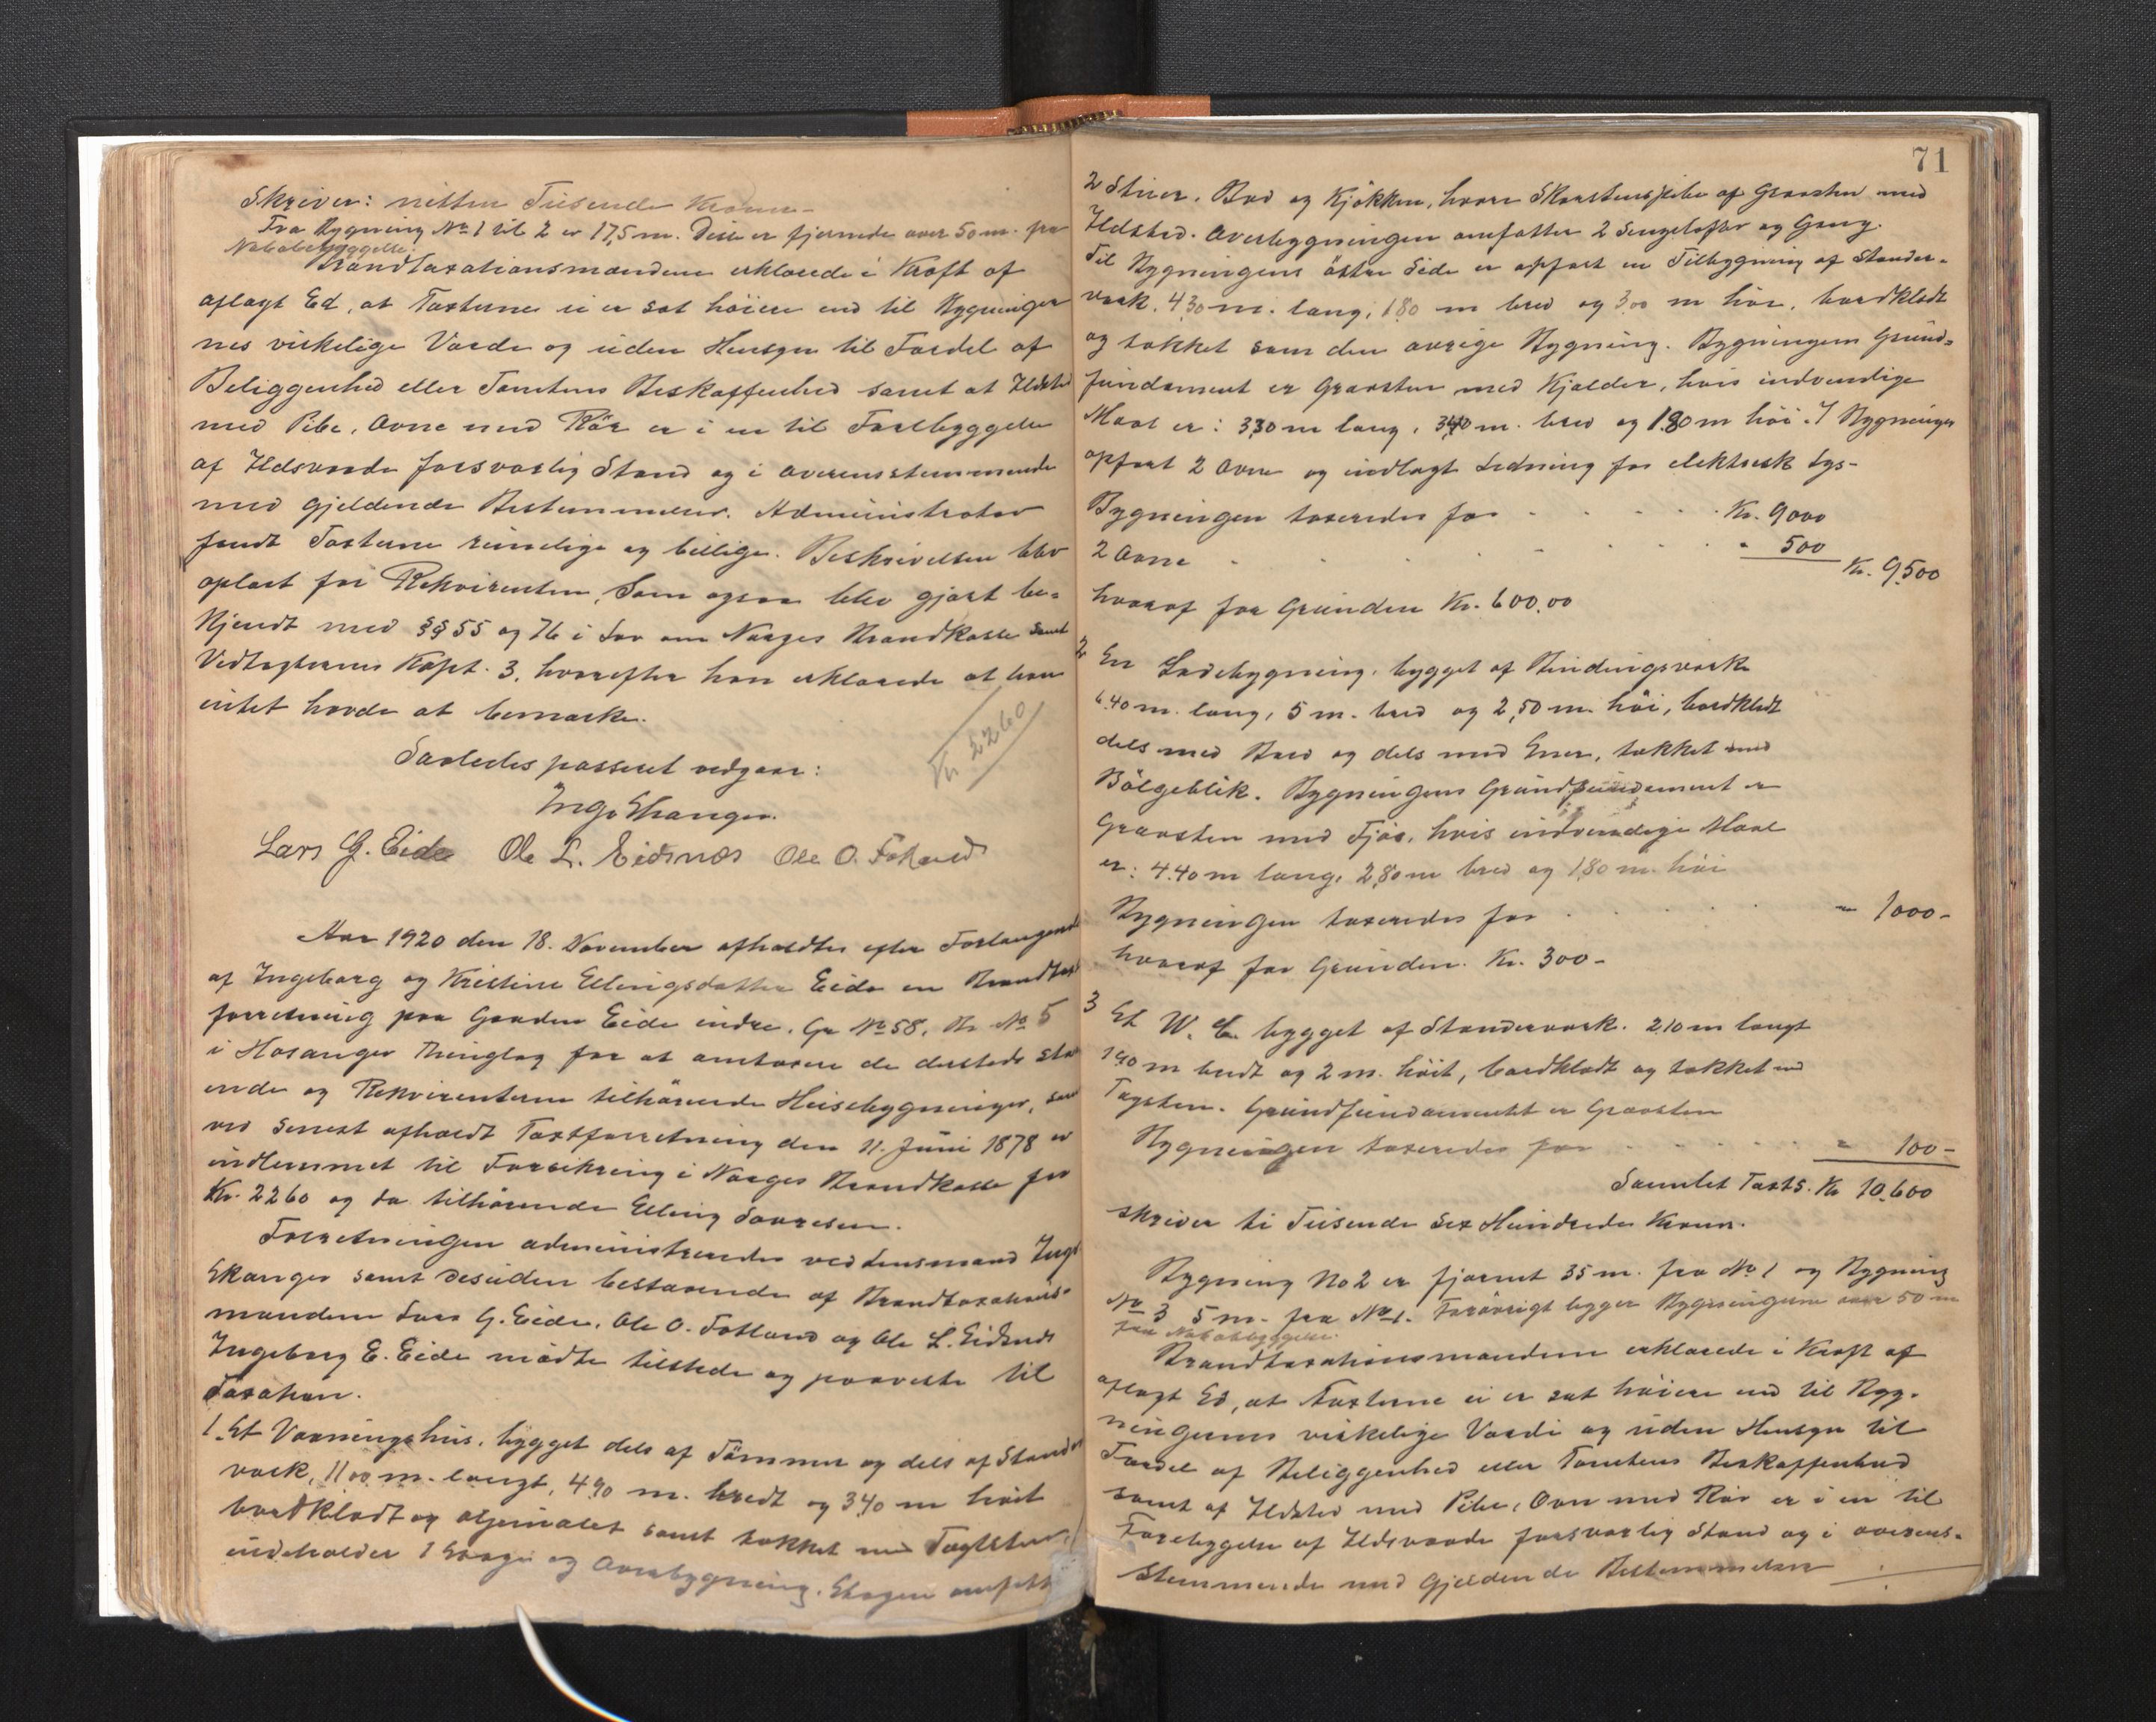 Skriver: nitten Tusende Kroner-
Fra Bygning No 1 til 2 er 17,5 m. Disse er fjernede over 50 m. fra
Nabobebyggelse.
Brandtaxationsmændene erklærede i Kraft af
aflagt Ed, at Taxterne ei er sat høiere end til Bygninger
nes virkelige Værdi og uden Hensyn til Fordel af
Beliggenhed eller Tomtens Beskaffenhed samt at Ildsted
med Pibe, Ovne med Rör er i en til Forebyggelse
af Ildsvaade forsvarlig Stand og i Overensstemmende
med gjeldende Bestemmelser. Administrator
fandt Taxterne rimelige og billige. Beskrivelsen blev
oplæst for Rekvirenten, som ogsaa blev gjort be-
kjendt med §§ 55 og 76 i Lov om Norges Brandkasse samt
Vedtægternes Kapt. 3, hvorefter han erklærede at han
intet havde at bemærke.
Kr 2260
Saaledes passeret vedgaar:
Inga Skanger.
Lars G. Eide Ole L. Eidsnes Ole O. Fotland
Aar 1920 den 18. November afholdtes efter Forlangende
af Ingeborg og Kristine Ellingsdatter Eide en Brandtaxt
forretning paa Gaarden Eide indre. Gr No 58, Br No 5
i Hosanger Thinglag for at omtaxere de dersteds sta
ende og Rekvirenterne tilhörende Husebygninger, som
ved senest afholdt Taxtforretning den 11. Juni 1878 er
indlemmet til Forsikring i Norges Brandkasse for
Kr. 2260 og da tilhörende Elling Sjursen.
Forretningen administreredes ved Lensmand Inga
Skanger samt desuden bestaaende af Brandtaxations-
mændene Lars G. Eide, Ole O. Fotland og Ole L. Eidsnes
Ingeborg E. Eide mödte tilstede og paaviste til
Taxation.
1. Et Vaaningshus, bygget dels af Tömmer og dels af Stander
værk, 11 00 m. langt, 4 90 m. bredt og 3 40 m höit
bordklædt og oljemalet samt tækket med Taglsten,
indeholder 1 Etage og Overbygning. Etagen omfatter
71
2 Stuer. Bod og Kjökken, hvori Skorstenspibe af Graasten med
Ildsted. Overbygningen omfatter 2 Sengelofter og Gang.
Til Bygningens östre Side er opført en Tilbygning af Stander-
værk. 4 30 m. lang, 1 80 m bred og 3 00 m höi, bordklædt
og tækket som den övrige Bygning. Bygningens Grund-
fundament er Graasten med Kjælder, hvis indvendige
Maal er: 3 30 m lang, 3 40 m. bred og 1 80 m höi. I Bygningen
opført 2 Ovne og indlagt Ledning for elektrisk Lys-
Bygningen taxeredes for . . . . Kr. 9000
2 Ovne . . . . . . " 500
Kr. 9500
hvoraf for Grunden Kr. 600.00
2 En Ladebygning, bygget af Bindingsværk
6.40 m. lang, 5 m. bred og 2,50 m. höi, bordklædt
dels med Bord og dels med Ener, tækket med
Bölgeblik. Bygningens Grundfundament er
Graasten med Fjös, hvis indvendige Maal
er: 4.40 m lang, 2 80 m bred og 1 80 m. höi
Bygningen taxeredes for . . . . " 1000-
hvoraf for Grunden. Kr. 300-
3 Et W. C. bygget af Standerværk. 2 10 m langt
1 40 m bredt og 2 m. höit, bordklædt og tækket med
Tagsten. Grundfundamentet er Graasten
Bygningen taxeredes for . . . . " 100-
Samlet Taxts. Kr 10.600
skriver ti Tusende Sex Hundrede Kroner.
Bygning No 2 er fjernet 35 m. fra No 1 og Bygning
No 3 5 m. fra No 1. Forövrigt ligger Bygningerne over 50 m
fra Nabobebyggelse.
Brandtaxationsmændene erklærede i Kraft af
aflagt Ed, at Taxterne ei er sat höiere end til Byg-
ningernes virkelige Værdi og uden Hensyn til
Fordel af Beliggenhed eller Tomtens Beskaffenhed
samt at Ildsted med Pibe, Ovn med Rör er i en til
Forebyggelse af Ildsvaade forsvarlig Stand og i overens-
stemmende med gjeldende Bestemmelser